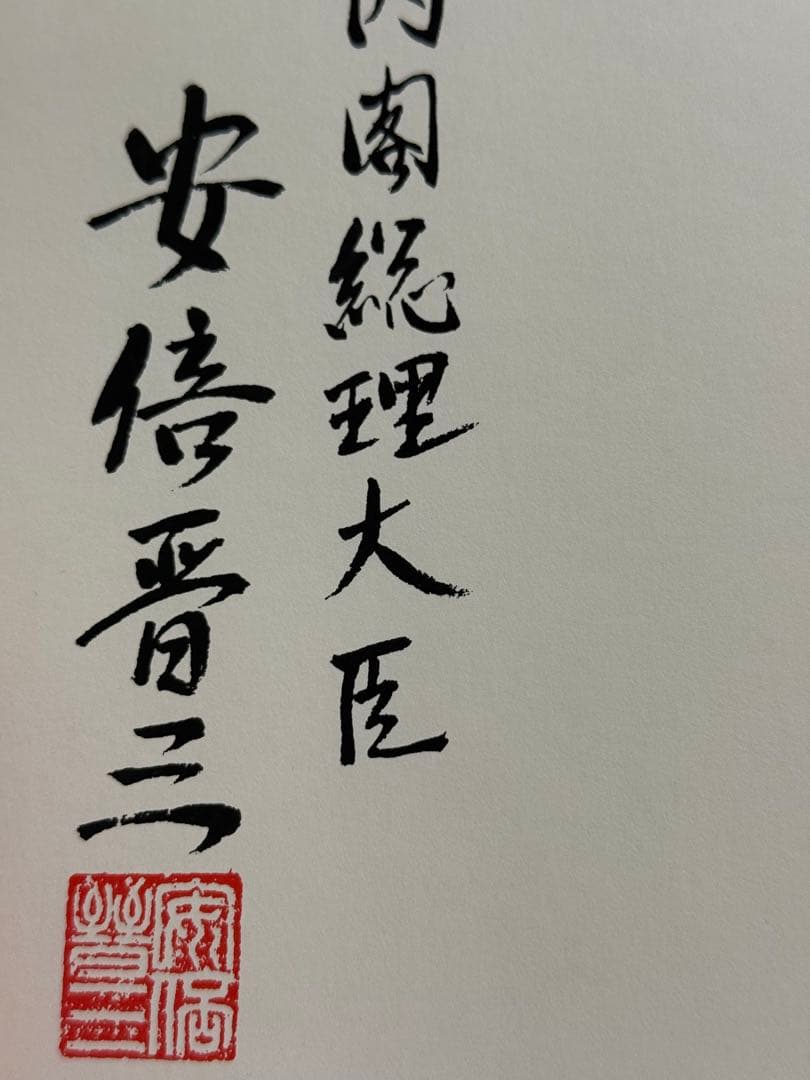 内閣総理大臣
安倍晋三
安倍
晋三